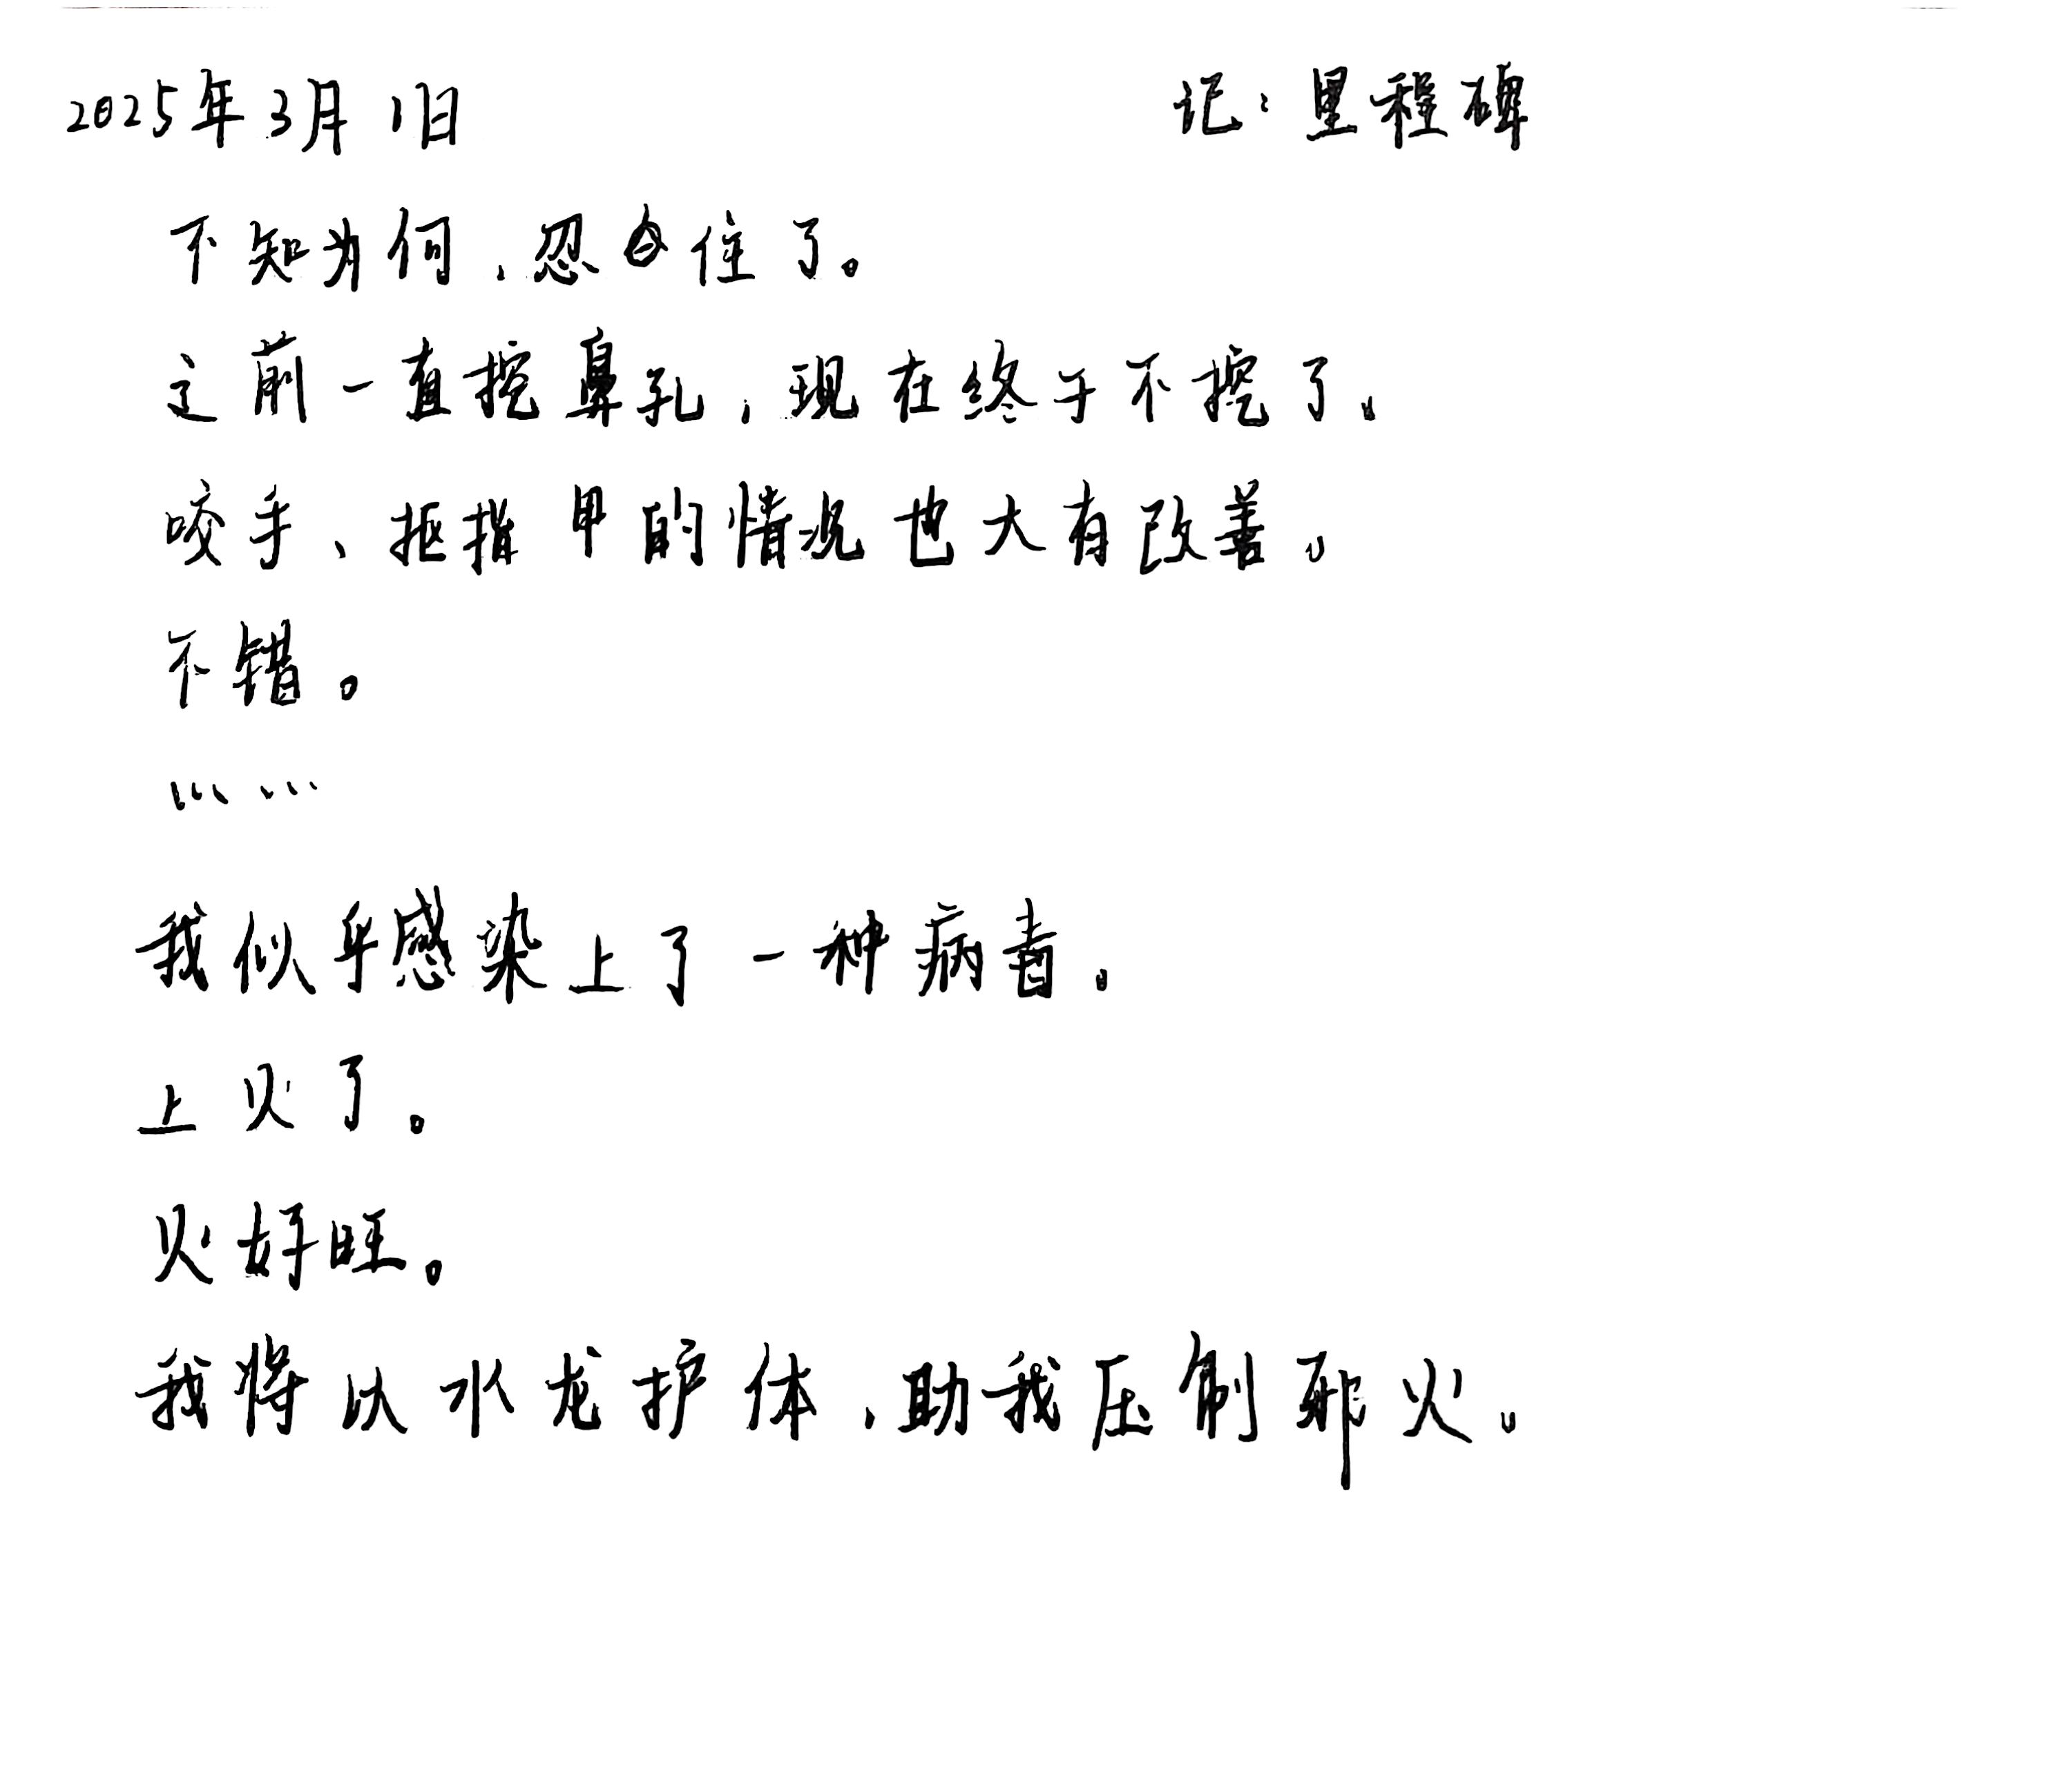 2025年3月1日 记：里程碑
不知为何，忍住了。
之前一直挖鼻孔，现在终于不挖了。
咬手、抠指甲的情况也大有改善。
不错。
……
我似乎感染上了一种病毒。
上火了。
火好旺。
我将以水龙护体，助我压制邪火。